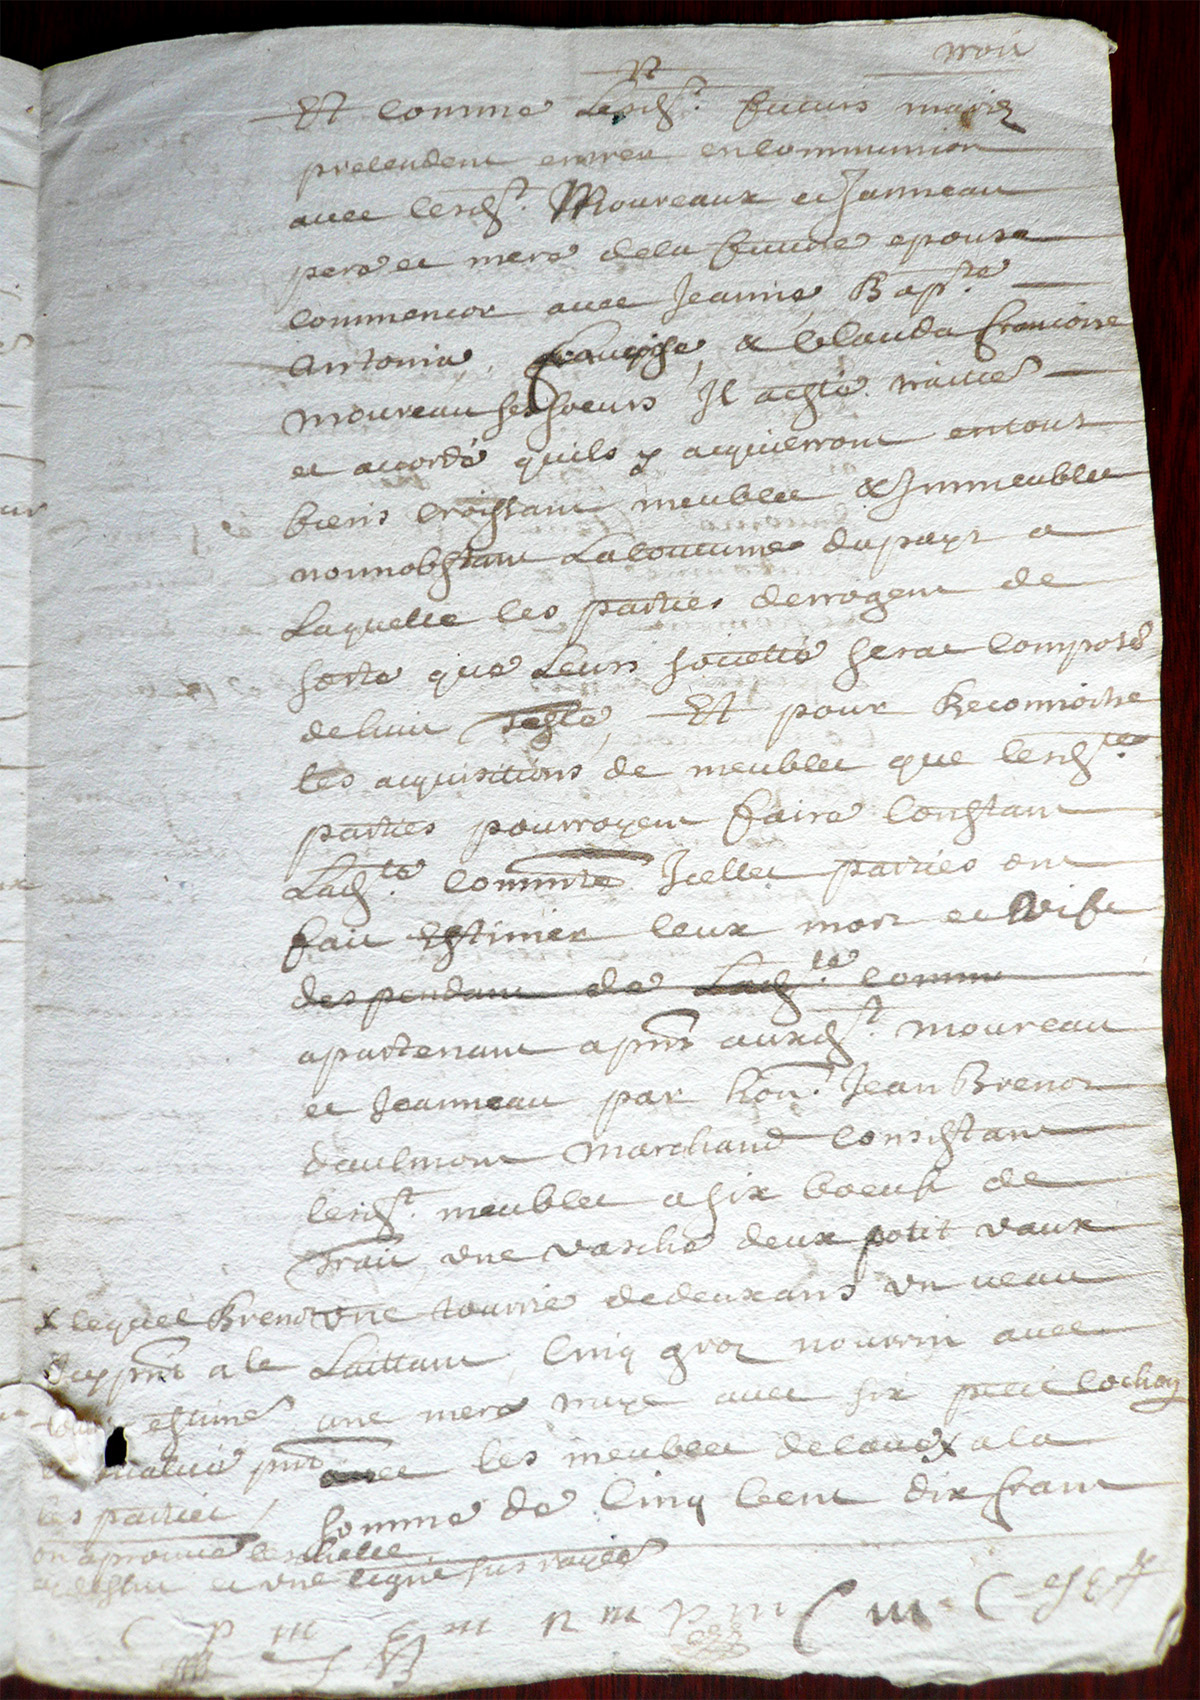 trois
Et comme lesd.t futurs mariez
pretendent entrer en communion
avec lesd.t Moureaux et Janneau
pere et mere de la future epouse
commencer avec Jeanne, Bap.te
Antonia, françoise, & Clauda françoise
moureau ses soeurs Il a esté traitté
et accordé quils y acquierront en tous
biens croissant meubles & Immeubles
nonnobstant La coutume du pays a
Laquelle les parties derrogent de
sorte que Leurs societté serat composé
de huit teste, Et pour Reconnoitre
les acquisitions de meubles que lesd.tes
parties pourroyent faire constant
Lad.te commn̄te Icelles parties ont
fait Estimer leur mort et vifs
despendant de Lad.te comm
apartenant a pn̄t auxd.t moureau
et Jeanneau par hon.' Jean Brenot
d'aulmont marchand consistant
lesd.t meubles a six boeufs de
trait, une vasche deux petit vaux
une tourie de deux ans un veau
Laittant, cinq gros nourrin avec
une mere truye avec six petit cochon
avec les meubles delave x a la
somme de Cinq Cent dix franc
x lequel Brenot
Icy pn̄t a le
estimé
pn̄t
les parties /
on aprouve
cy dessus et une ligne sus rayée
C p m m n m p m C m C